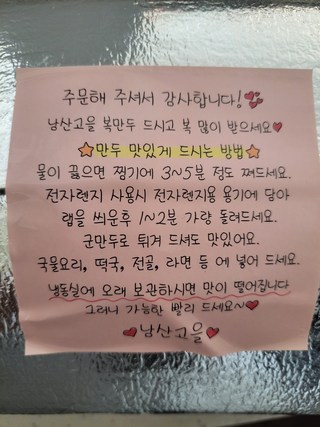 주문해 주셔서 감사합니다!
남산고을 복만두 드시고 복 많이 받으세요
만두 맛있게 드시는 방법
물이 끓으면 찜기에 3~5분 정도 쪄드세요.
전자렌지 사용시 전자렌지용 용기에 담아
랩을 씌운후 1~2분 가량 돌려드세요.
군만두로 튀겨 드셔도 맛있어요.
국물요리, 떡국, 전골, 라면 등 에 넣어 드세요.
냉동실에 오래 보관하시면 맛이 떨어집니다
그러니 가능한 빨리 드세요~
남산고을